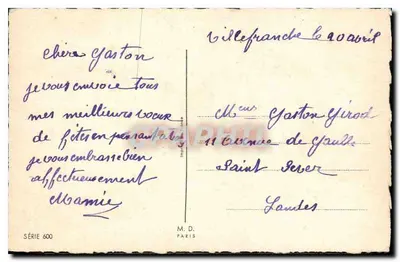 Villefranche le 20 avril
chère Gaston
je vous envoie tous
mes meilleures voeux
de fêtes en pensant
je vous embrasse bien
affectueusement
Mamie
Mcur Gaston Girod
11 avenue de Gaulle
Saint Sever
Landes
SÉRIE 600
M. D.
PARIS